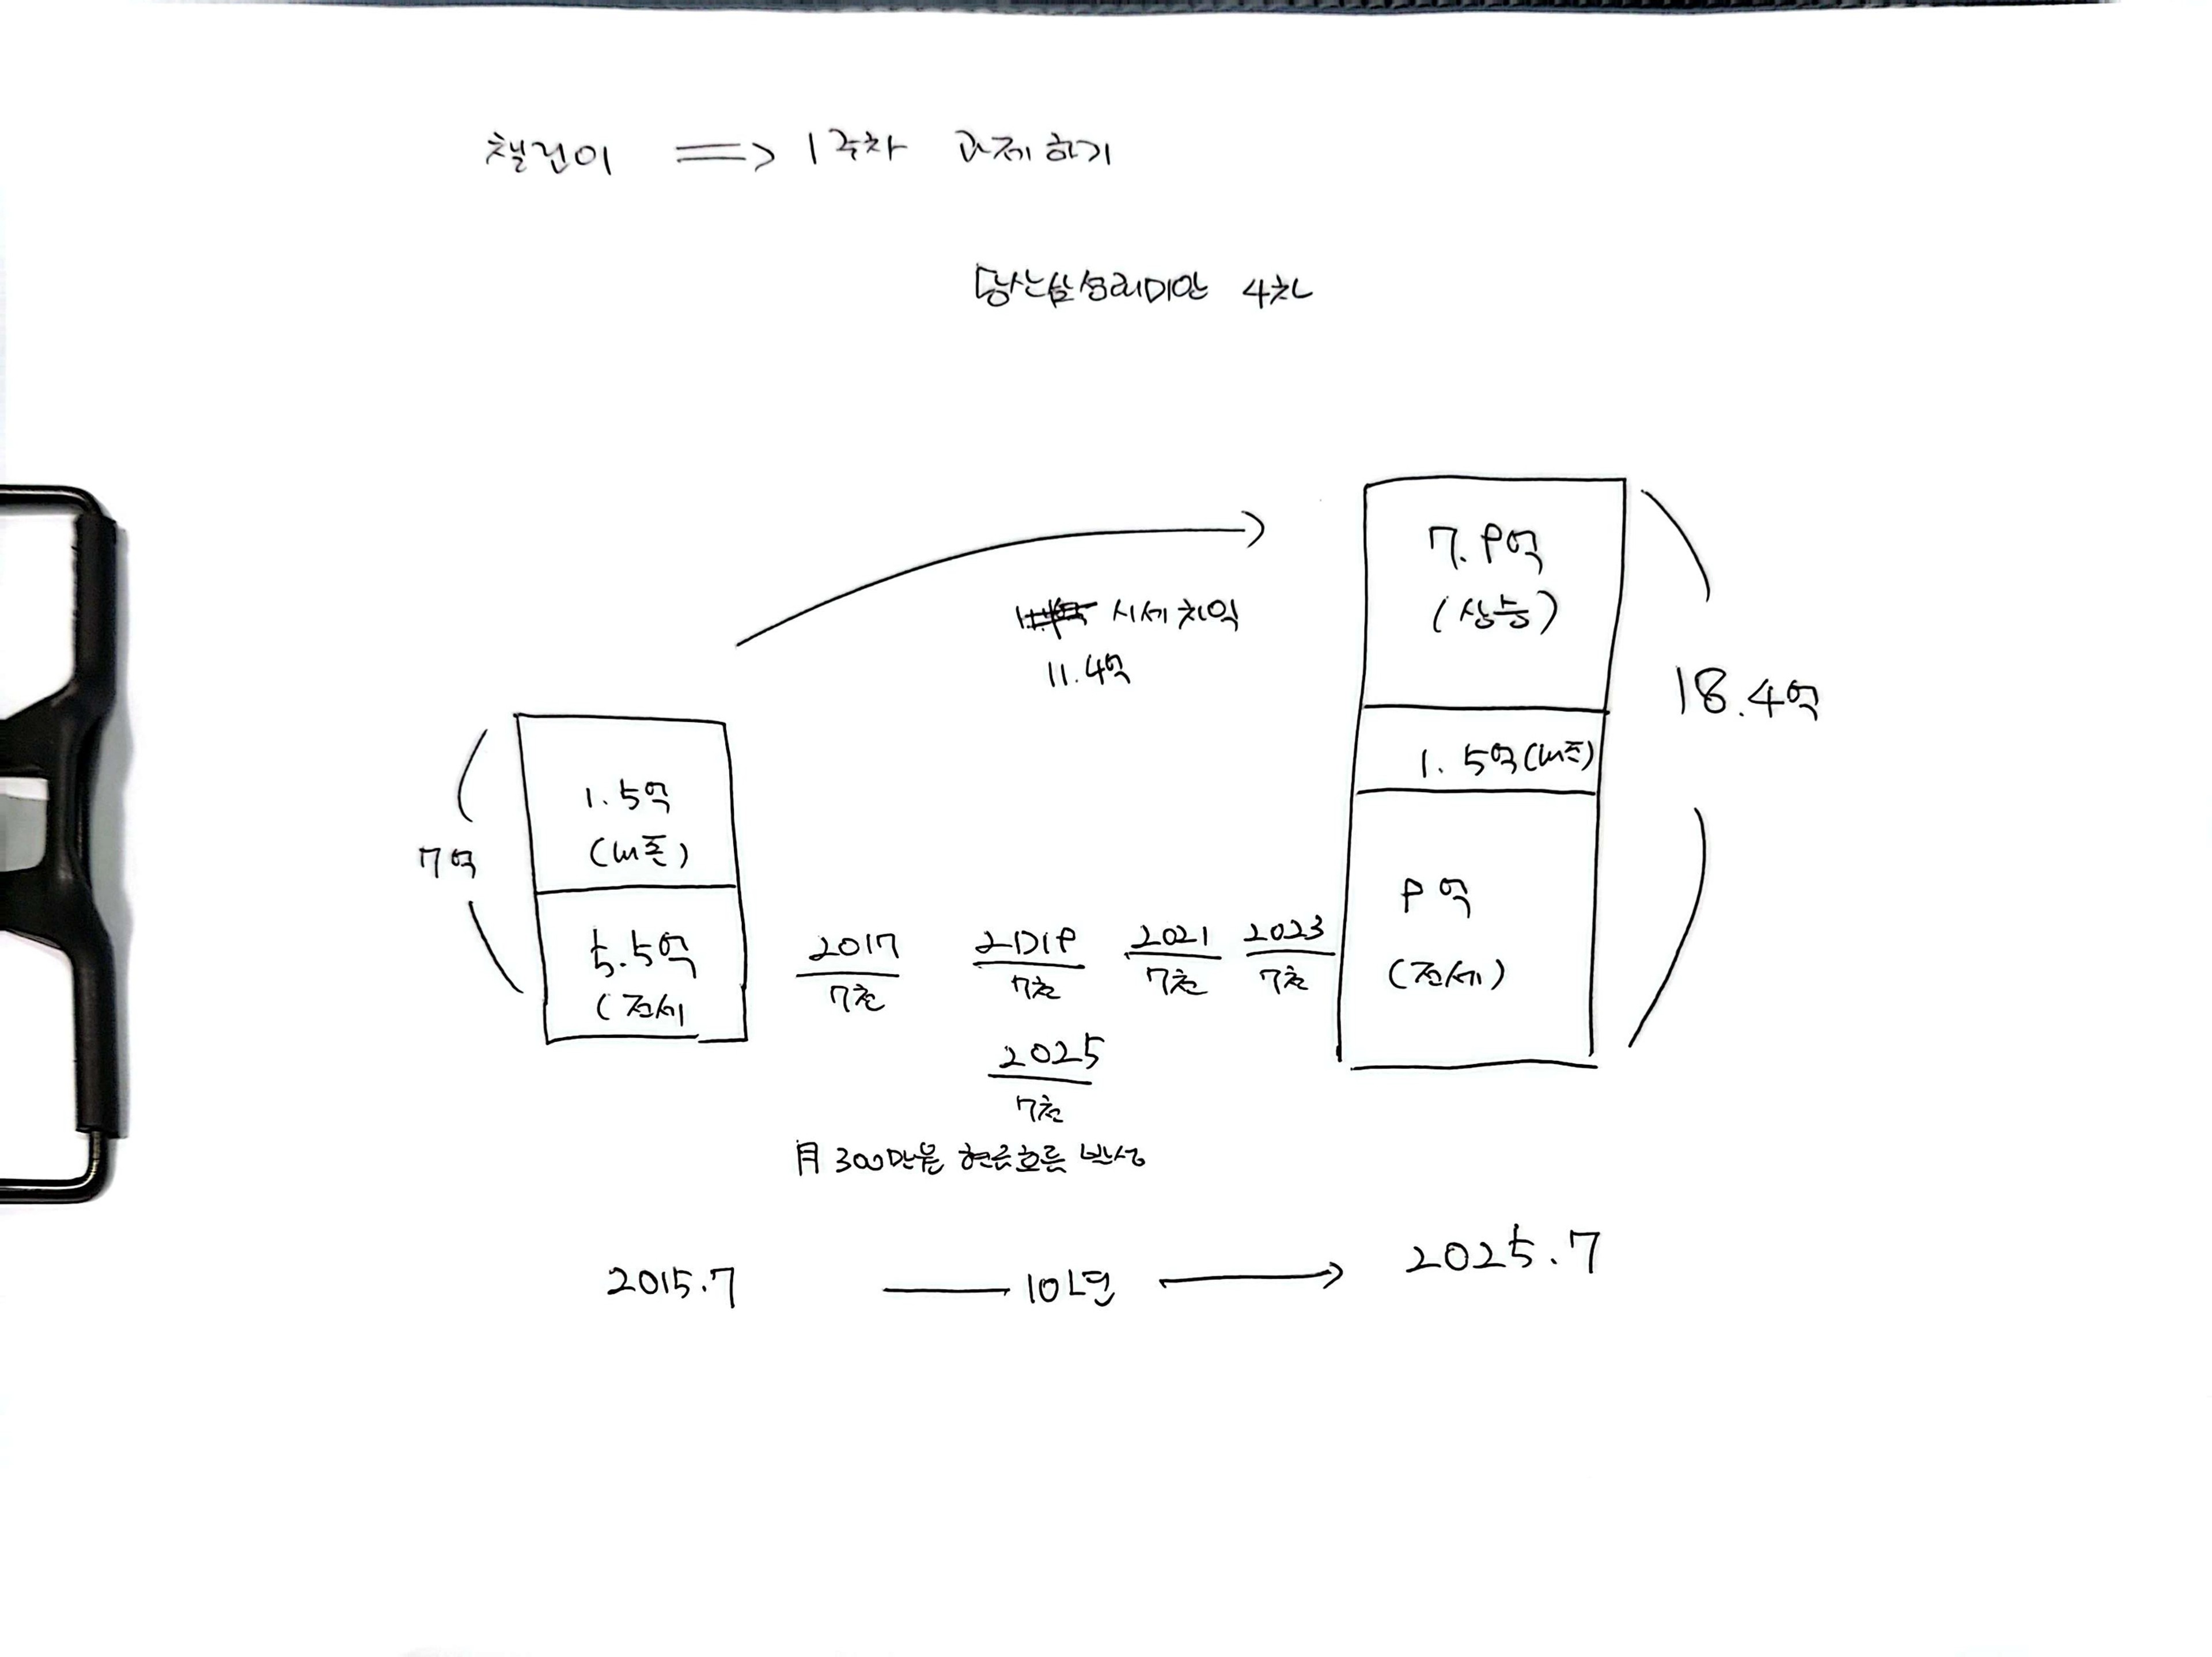 챌린이 => 1주차 과제하기
당산삼성래미안 4차
7.9억
(상승)
시세차익
11.4억
18.4억
1.5억(내돈)
1.5억
(내돈)
7억
9억
(전세)
5.5억
(전세
2017 2019 2021 2023
7천 7천 7천 7천
2025
7천
月 300만원 현금흐름 발생
2015.7 10년 2025.7